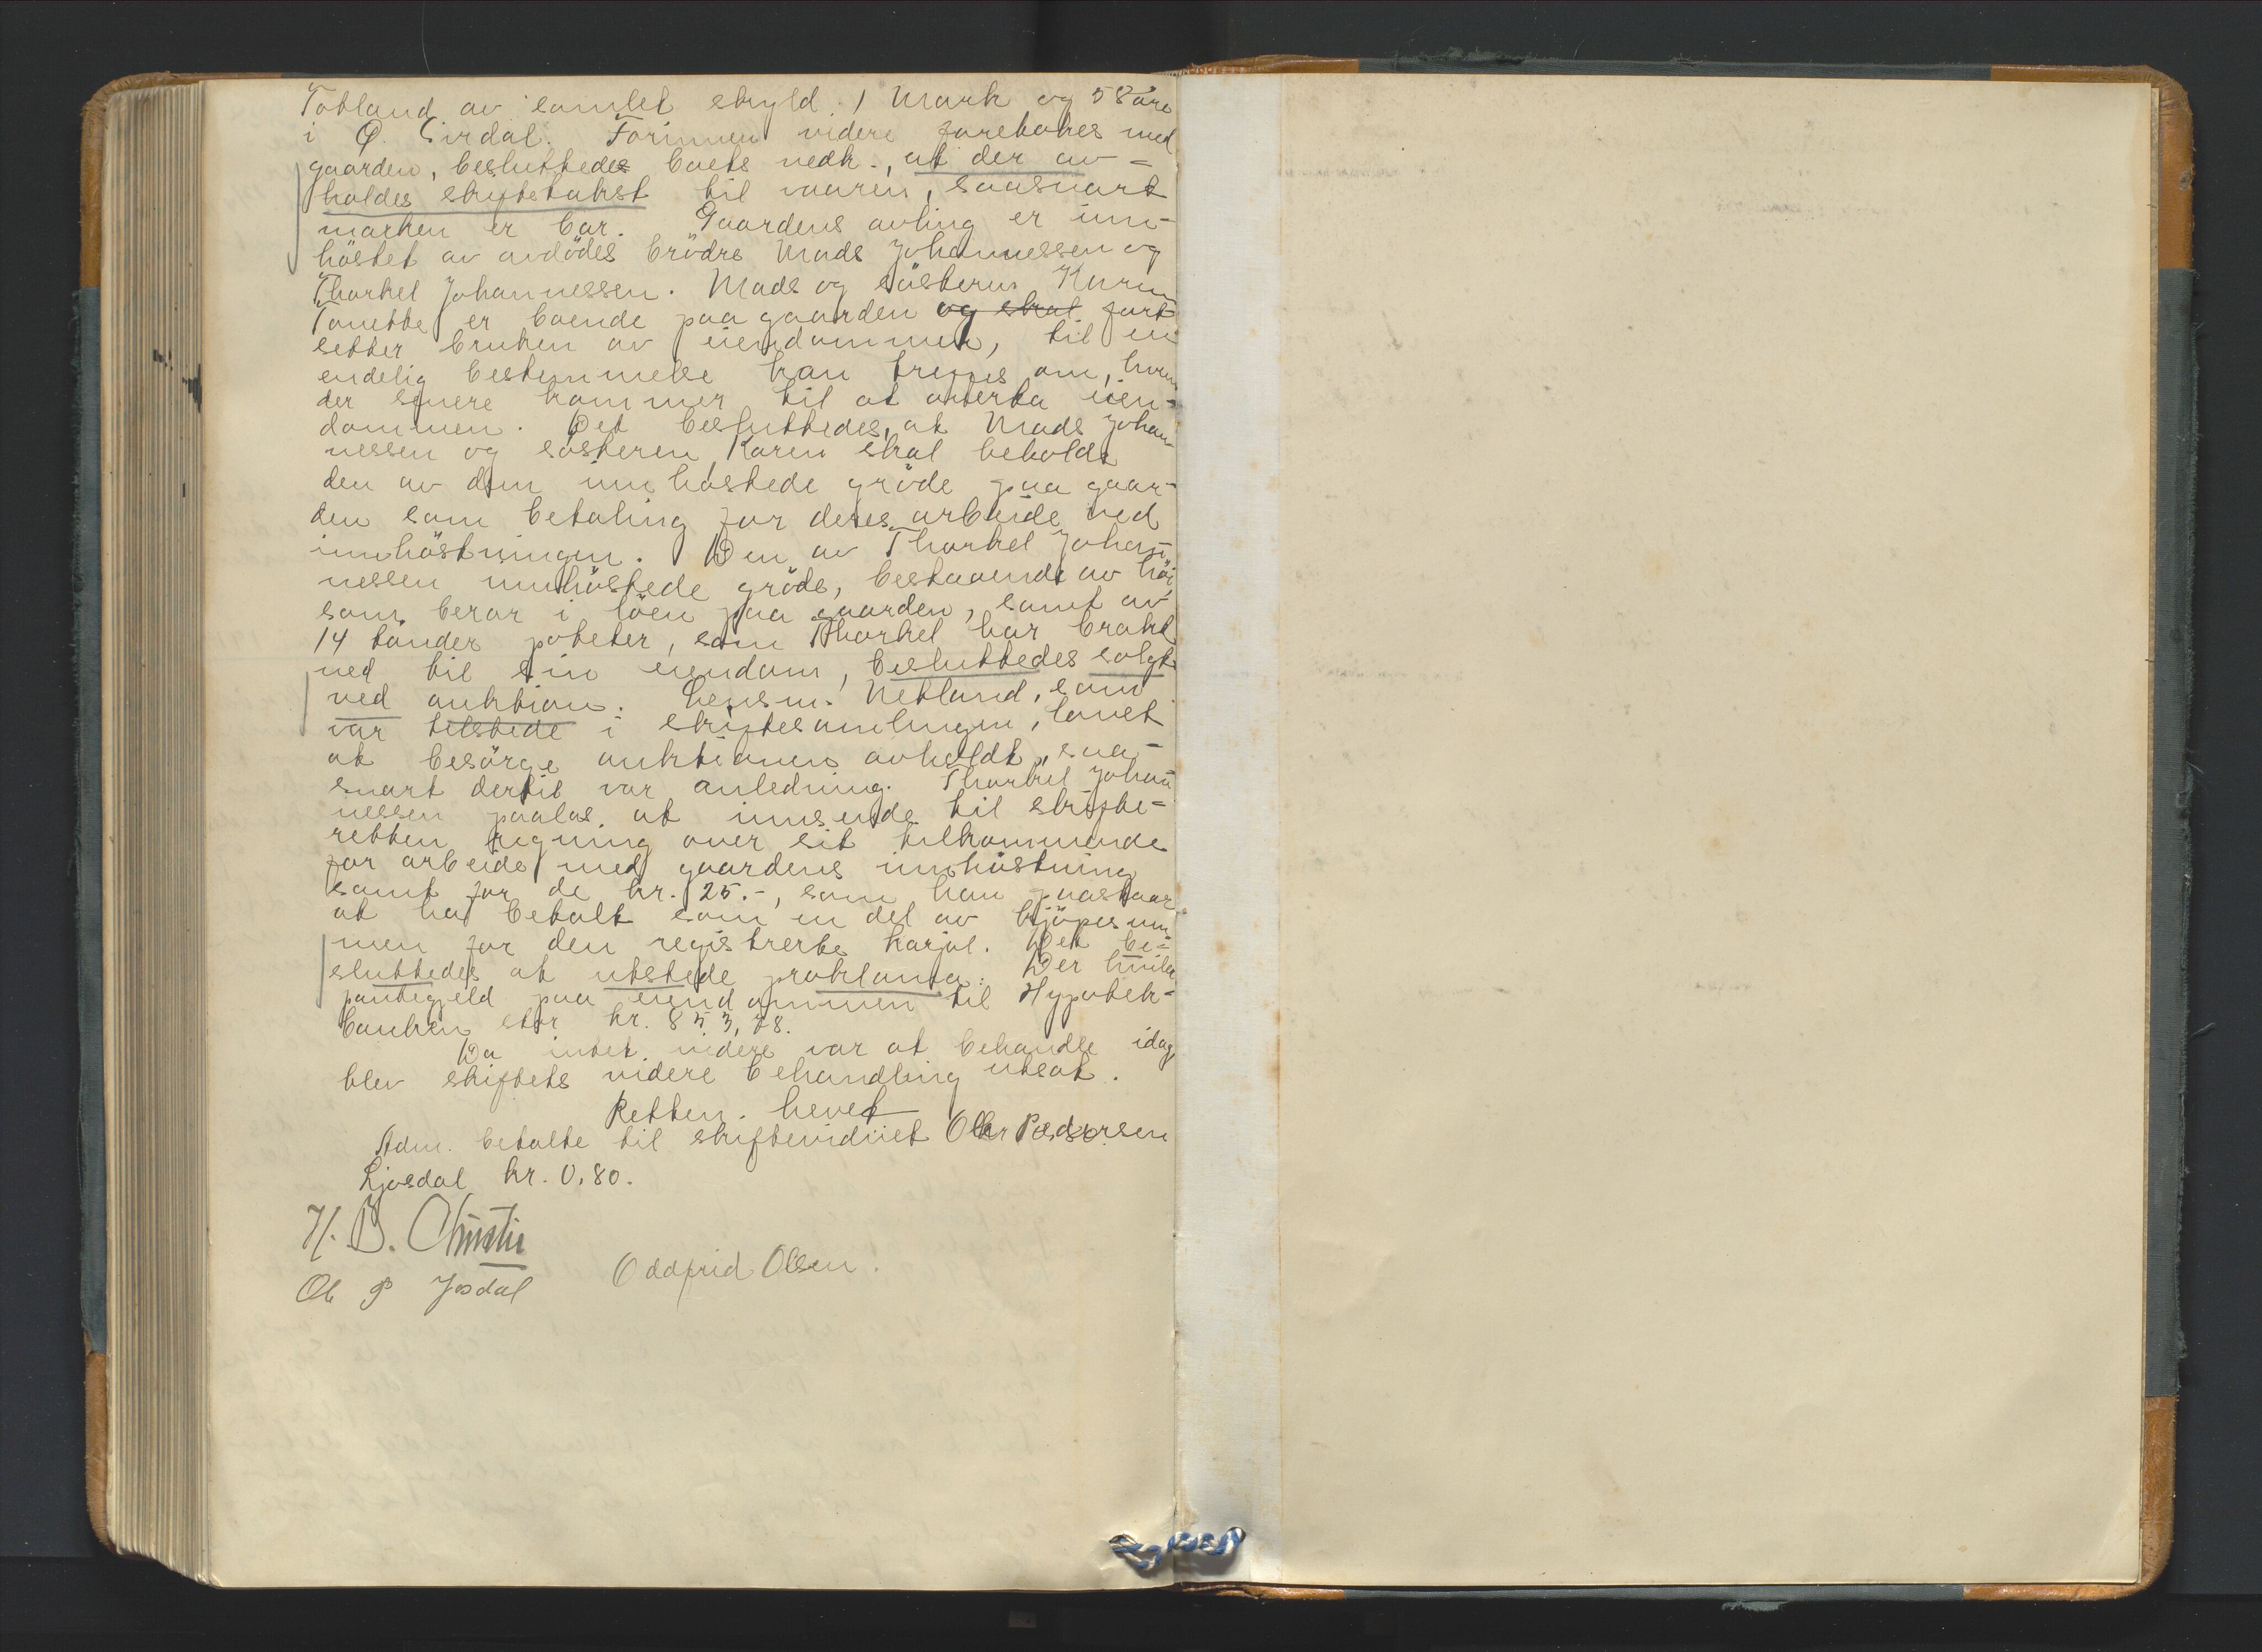 Totland av samlet skyld 1 Mark og 58 øre
i Ø. Sirdal. Forinnen videre foretokes med
gaarden, besluttedes boets vedk., at der av-
holdes skiftetakst til vaaren, saasnart
marken er bar. Gaardens avling er inn-
höstet av avdödes brödre Mads Johannessen og
Thorkel Johannessen. Mads og söskeren Karen
Tonette er boende paa gaarden og skal fort
setter bruken av eiendommen, til en
endelig bestemmelse kan treffes om, hvem
der senere kommer til at overta eien-
dommen. Det besluttedes, at Mads Johan-
nessen og sösteren Karen skal beholde
den av dem innhöstede gröde paa gaar-
den som betaling for deres arbeide ved
innhöstningen. Den av Thorkel Johan-
nessen innhöstede gröde, bestaaende av höi,
som beror i löen paa gaarden, samt av
14 tönder poteter, som Thorkel har brakt
ned til sin eiendom, besluttedes solgt
ved auktion. Lensm. Netland, som
var tilstede i skiftesamlingen, lovet
at besörge auktionen avholdt, saa-
snart dertil var anledning. Thorkel Johan
nessen paalas at innsende til skifte-
retten regning over sit tilkommende
for arbeide med gaardens innhöstning
samt for de kr. 25.-, som han paastaar
at ha betalt som en del av kjöpesum
men for den registrerte karjol. Det be-
sluttedes at utstede proklama. Der hviler
pantegjeld paa eiendommen til Hypotek-
banken stor kr. 853,78.
Da intet videre var at behandle idag,
blev skiftets videre behandling utsat.
Retten hevet
Adm. betalte til skiftevidnet Ole Pedersen
Ljosdal kr. 0,80.
H. B. Christie
Ole P Josdal Oddfrid Olsen.